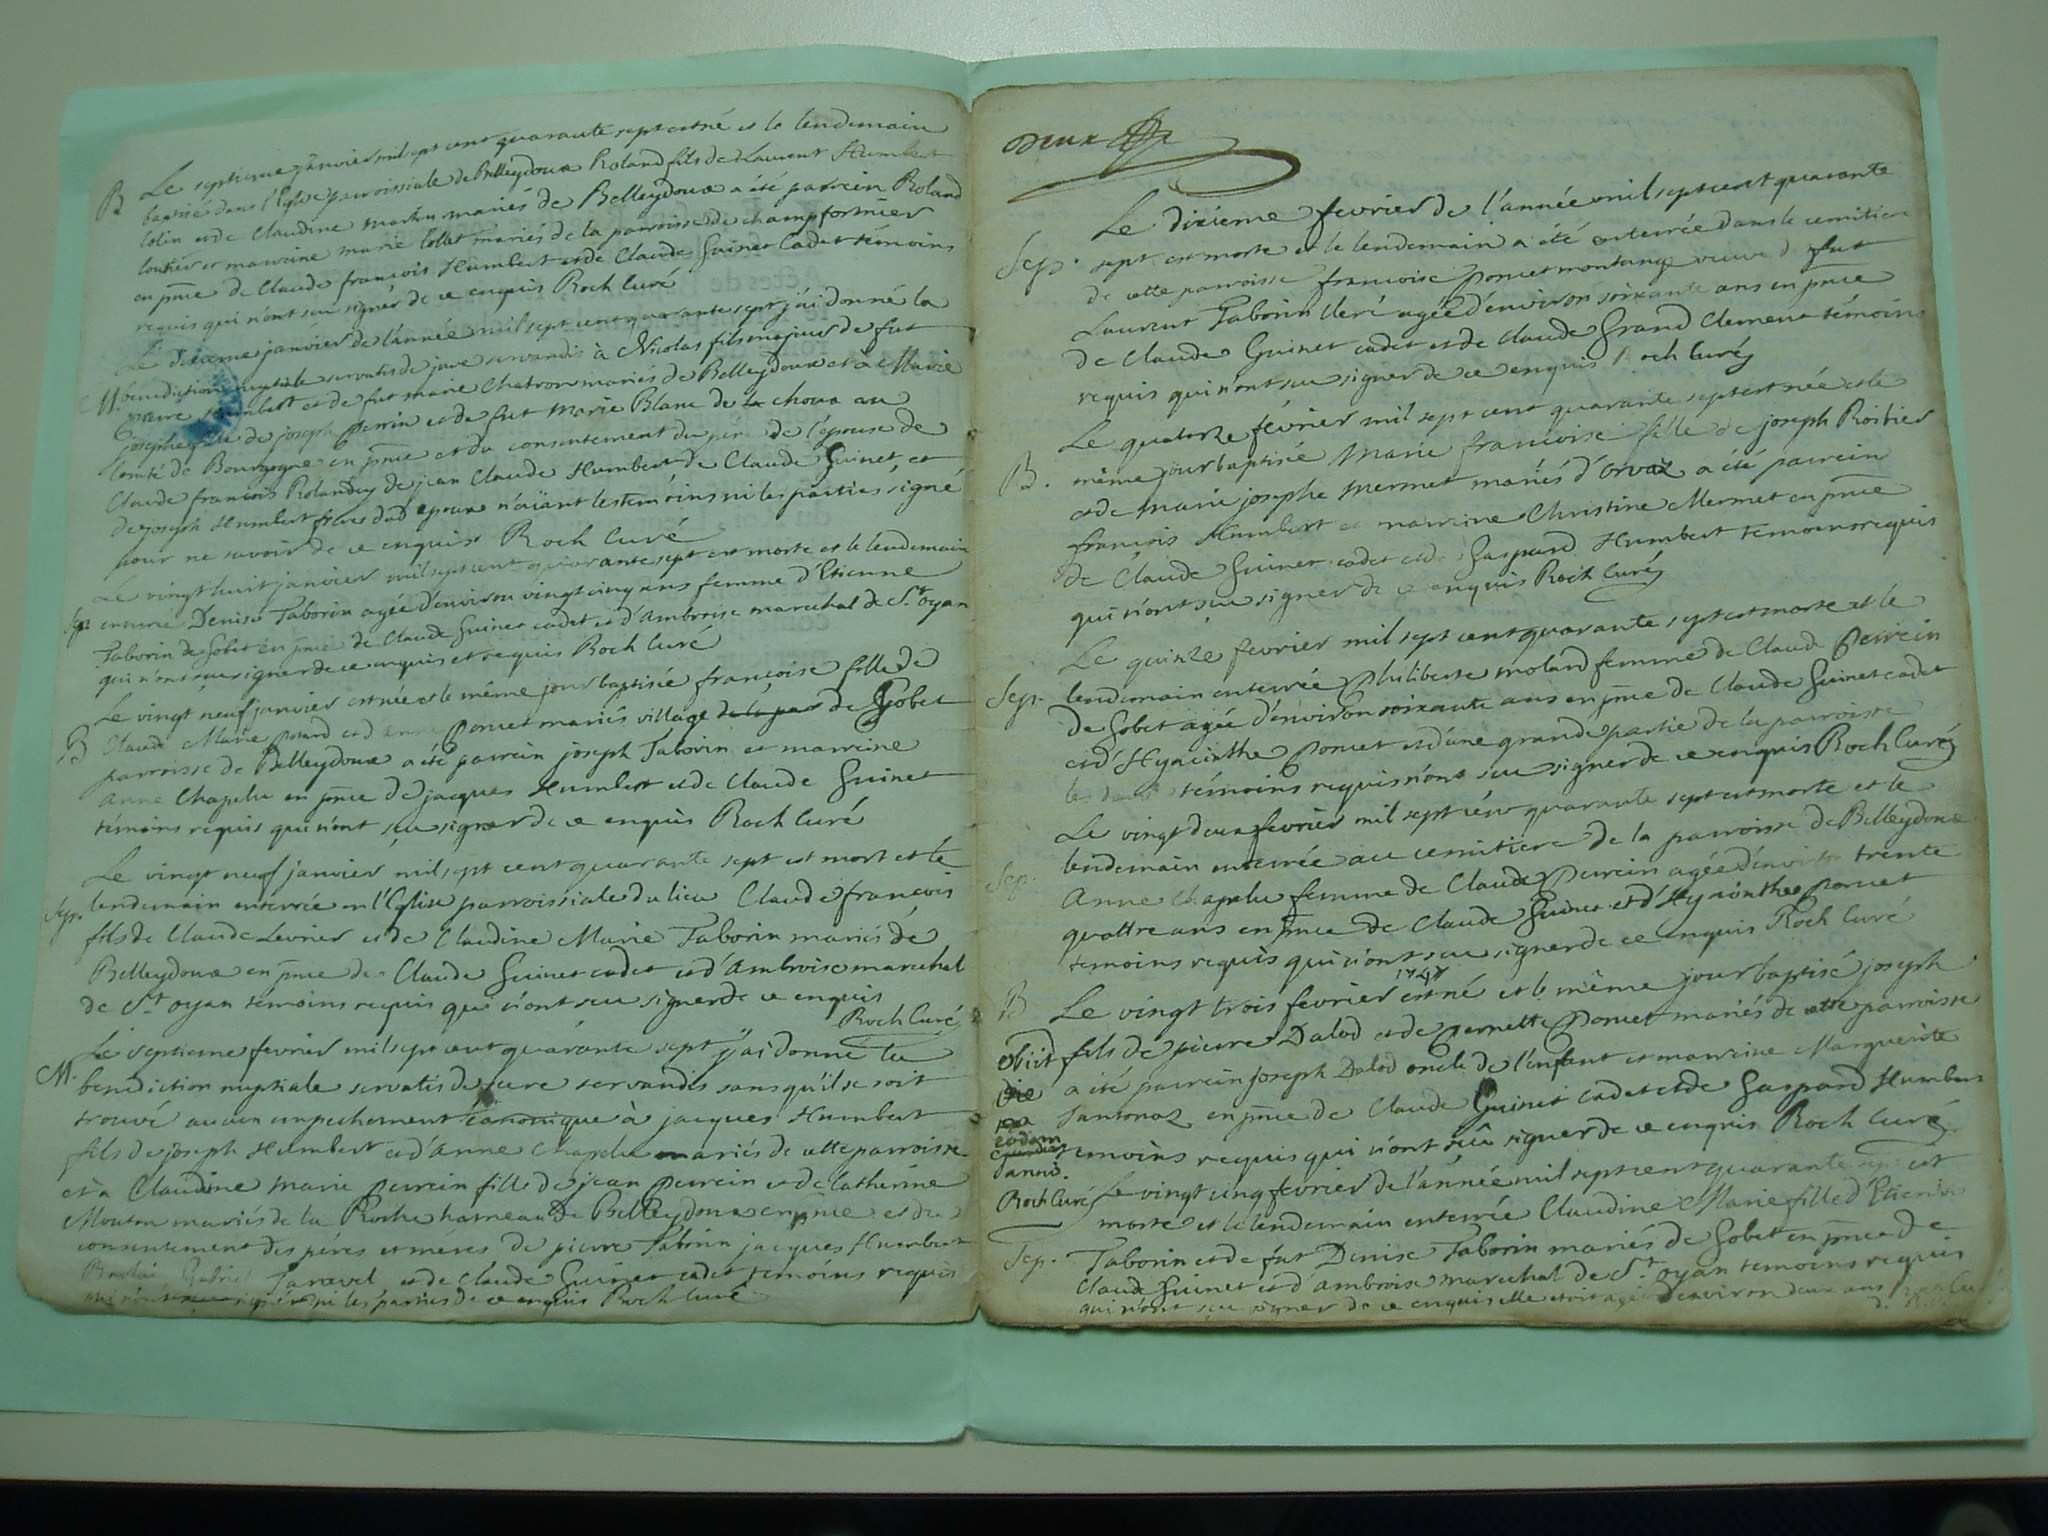 B Le septieme janvier mil sept cent quarante sept est né et le lendemain
baptisé dans l'Eglise parroissiale de Belleydoux Roland fils de Laurent Humbert
Colin et de Claudine mariés de Belleydoux a été parrein Roland
et marreine marie Collet mariés de la parroisse de champformier
en pnce de Claude françois Humbert et de Claude Guinet Cadet témoins
requis qui n'ont seu signer de ce enquis Roch Curé
M. Le dixieme janvier de l'année mil sept cent quarante sept j'ai donné la
bénédiction nuptiale servatis de jure servandis à Nicolas fils majeur de fut
pierre Humbert et de fut marie Chatron mariés de Belleydoux et à Marie
josephe fille de joseph perrin et de fut Marie Blanc de la choua au
Comté de Bourgogne en pnce et du consentement du pére de l'épouse de
Claude francois Rolandez de jean Claude Humbert de Claude Guinet, et
de joseph Humbert frere dud epoux n'aiant les temoins ni les parties signé
pour ne savoir de ce enquis Roch Curé
Sep. Le vingt huit janvier mil sept cent quarante sept est morte et le lendemain
enterrée Denise Taborin agée d'environ vingt cinq ans femme d'Etienne
Taborin de Gobet en pnce de Claude Guinet cadet et d'Ambroise marechal de St. oyan
qui n'ont seu signer de ce enquis et requis Roch Curé
B Le vingt neuf janvier est née et le même jour baptisée françoise fille de
Claude Marie et d'anne poncet mariés village de la par de Gobet
parroisse de Belleydoux a été parrein joseph Taborin et marreine
Anne Chapelu en pnce de jacques Humbert et de Claude Guinet
témoins requis qui n'ont seu signer de ce enquis Roch Curé
Sep. Le vingt neuf janvier mil sept cent quarante sept est mort et le
lendemain enterrée en l'Eglise parroissiale du lieu Claude françois
fils de Claude Levrier et de Claudine Marie Taborin mariés de
Belleydoux en pnce de Claude Guinet cadet et d'Ambroise marechal
de St. oyan temoins requis qui n'ont seu signer de ce enquis
Roch Curé
M. Le septieme fevrier mil sept cent quarante sept j'ai donné la
benediction nuptiale servatis de jure servandis sans qu'il se soit
trouvé aucun empechement canonique à jacques Humbert
fils de joseph Humbert et d'Anne Chapelu mariés de cette parroisse
et à Claudine Marie perrein fille de jean perrein et de Catherine
Mouton mariés de la Roche hameau de Belleydoux en pnce et du
consentement des péres et méres de pierre Taborin jacques Humbert
Gabriel Tanavel et de Claude Guinet cadet temoins requis
qui n'ont signé ni les parties de ce enquis Roch Curé
Deux
Sep. Le dixieme fevrier de l'année mil sept cent quarante
sept est morte et le lendemain a été enterrée dans le cemitiere
de cette parroisse francoise poncet montange veuve de fut
Laurent Taborin Cleré agée d'environ soixante ans en pnce
de Claude Guinet cadet et de Claude Grand Clement témoins
requis qui n'ont seu signer de ce enquis Roch Curé
B. Le quatorze février mil sept cent quarante sept est née et le
même jour baptisée Marie francoise fille de joseph Roibier
et de Marie josephe Mermet mariés d'orvaz a été parrein
francois Humbert et marreine Christine Mermet en pnce
de Claude Guinet cadet et de Gaspard Humbert temoins requis
qui n'ont seu signer de ce enquis Roch Curé
Sep. Le quinze fevrier mil sept cent quarante sept est morte et le
lendemain enterrée philiberte molard femme de Claude perrein
de Gobet agée d'environ soixante ans en pnce de Claude Guinet cadet
et d'Hyacinthe poncet et d'une grande partie de la parroisse
les deux témoins requis n'ont seu signer de ce enquis Roch Curé
Sep. Le vingt deux fevrier mil sept cent quarante sept est morte et le
lendemain enterrée au cemitiere de la parroisse de Belleydoux
Anne Chapelu femme de Claude perrein agée d'environ trente
quattre ans en pnce de Claude Guinet et d'Hyacinthe poncet
temoins requis qui n'ont seu signer de ce enquis Roch Curé
B Le vingt trois fevrier 1747 est né et le même jour baptisé joseph
fils de pierre Dalod et de pernette poncet mariés de cette parroisse
a été parrein joseph Dalod oncle de l'enfant et marreine Marguerite
Santonaz en pnce de Claude Guinet cadet et de Gaspard Humbert
temoins requis qui n'ont seu signer de ce enquis Roch Curé
obiit
die
eodem
anno.
Roch Curé
Sep. Le vingt cinq fevrier de l'année mil sept cent quarante sept est
morte et le lendemain enterrée Claudine Marie fille d'Etienne
Taborin et de fut Denise Taborin mariés de Gobet en pnce de
Claude Guinet et d'ambroise marechal de St. oyan temoins requis
qui n'ont seu signer de ce enquis elle etoit agée d'environ deux ans